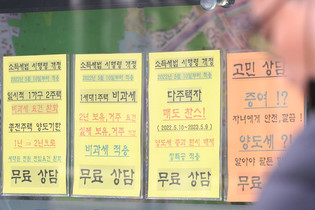 소득세법 시행령 개정
일시적 1가구 2주택
비과세 요건 완화
종전주택 양도기한
1년 → 2년으로
무료 상담
소득세법 시행령 개정
1세대1주택 비과세
2년 보유, 거주
비과세 적용
무료 상담
소득세법 시행령 개정
다주택자
매도 찬스!
(2022.5.10~2023.5.9)
양도세 중과 한시 배제
무료 상담
고민 상담
증여!?
자녀에게 안전, 꼼꼼!
양도세!?
무료